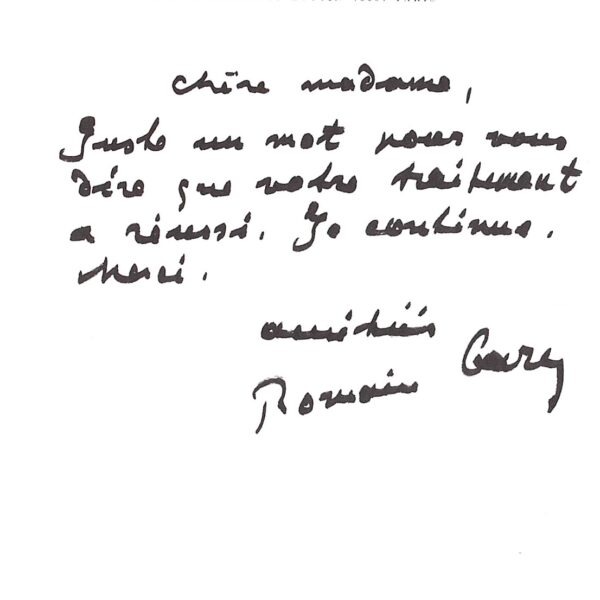 Chère madame,
Juste un mot pour vous
dire que votre traitement
a réussi. Je continue.
Merci.
amitiés
Romain Gary